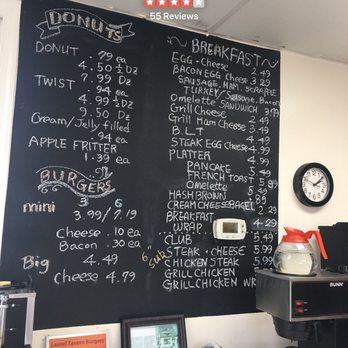 55 Reviews
DONUTS
DONUT .79 ea
4.50 ½ Dz
7.99 Dz
TWIST .94 ea
4.99 ½ DZ
9.50 Dz
Cream/Jelly filled
.94 ea
APPLE FRITTER
1.39 ea
BURGERS
3 6
mini 3.99/7.19
Cheese .10 ea
Bacon .30 ea
Big 4.49
Cheese 4.79
BREAKFAST
EGG - Cheese 2.49
BACON EGG Cheese 3.29
SAUSAGE, HAM, SCRAPPLE
TURKEY Sausage, Bacon
Omelette SANDWICH 3.99
Grill Cheese 2.49
Grill Ham Cheese 3.49
B.L.T 4.49
STEAK EGG Cheese 4.99
PLATTER
PANCAKE 5.49
FRENCH TOAST 5.49
Omelette
HASH BROWN
CREAM CHEESE BAGEL
BREAKFAST
WRAP 4.29
CLUB 5.99
6" SUB
STEAK - CHEESE
CHICKEN STEAK
GRILL CHICKEN
GRILL CHICKEN WR
BUNN
Laurel Tavern Burgers